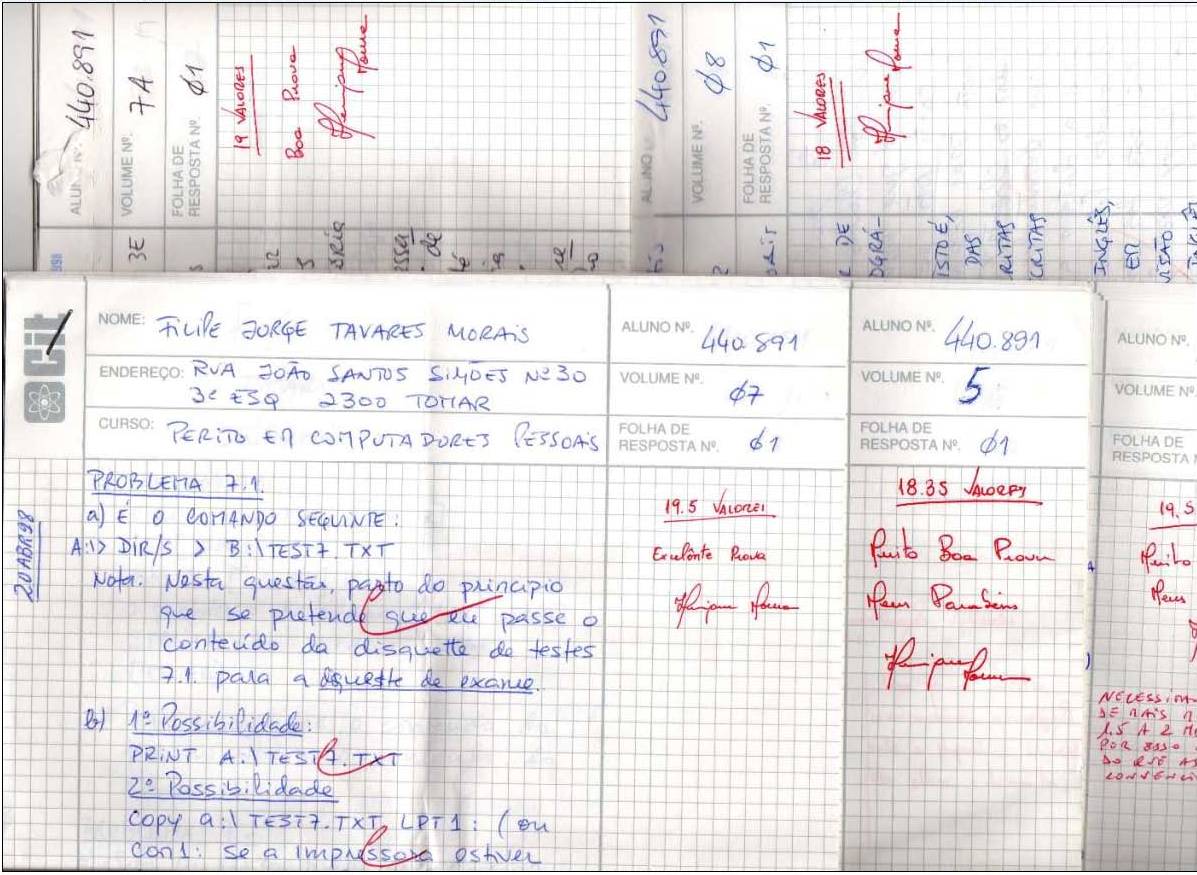 ALUNO Nº. 440.891
VOLUME Nº. 7A
FOLHA DE
RESPOSTA Nº. Ø1
19 VALORES
Boa Prova
3E
ALUNO 440.891
VOLUME Nº. Ø8
FOLHA DE
RESPOSTA Nº. Ø1
18 VALORES
DE
OGRÁ-
ISTO É,
DAS
RITAS
CRITAS
INGLÊS,
EM
VISÃO
cit
NOME: FILIPE JORGE TAVARES MORAIS
ENDEREÇO: RUA JOÃO SANTOS SIMÕES Nº 30
3º ESQ 2300 TOMAR
CURSO: PERITO EM COMPUTADORES PESSOAIS
ALUNO Nº. 440.891
VOLUME Nº. Ø7
FOLHA DE
RESPOSTA Nº. Ø1
20ABR98
PROBLEMA 7.1.
a) É O COMANDO SEGUINTE:
A:\> DIR/S > B:\TEST7.TXT
Nota. Nesta questão, parto do princípio
que se pretende que eu passe o
conteúdo da disquette de testes
7.1. para a disquette de exame.
b) 1ª Possibilidade:
PRINT A:\TEST7.TXT
2ª Possibilidade
Copy a:\TEST7.TXT LPT1: (ou
com1: se a impressora estiver
19.5 VALORES
Excelente Prova
ALUNO Nº. 440.891
VOLUME Nº. 5
FOLHA DE
RESPOSTA Nº. Ø1
18.35 VALORES
Muito Boa Prova
Meus Parabéns
ALUNO Nº.
VOLUME Nº.
FOLHA DE
RESPOSTA N
19.5
Muito
Meus
DE MAIS
1.5 A 2
POR ISSO